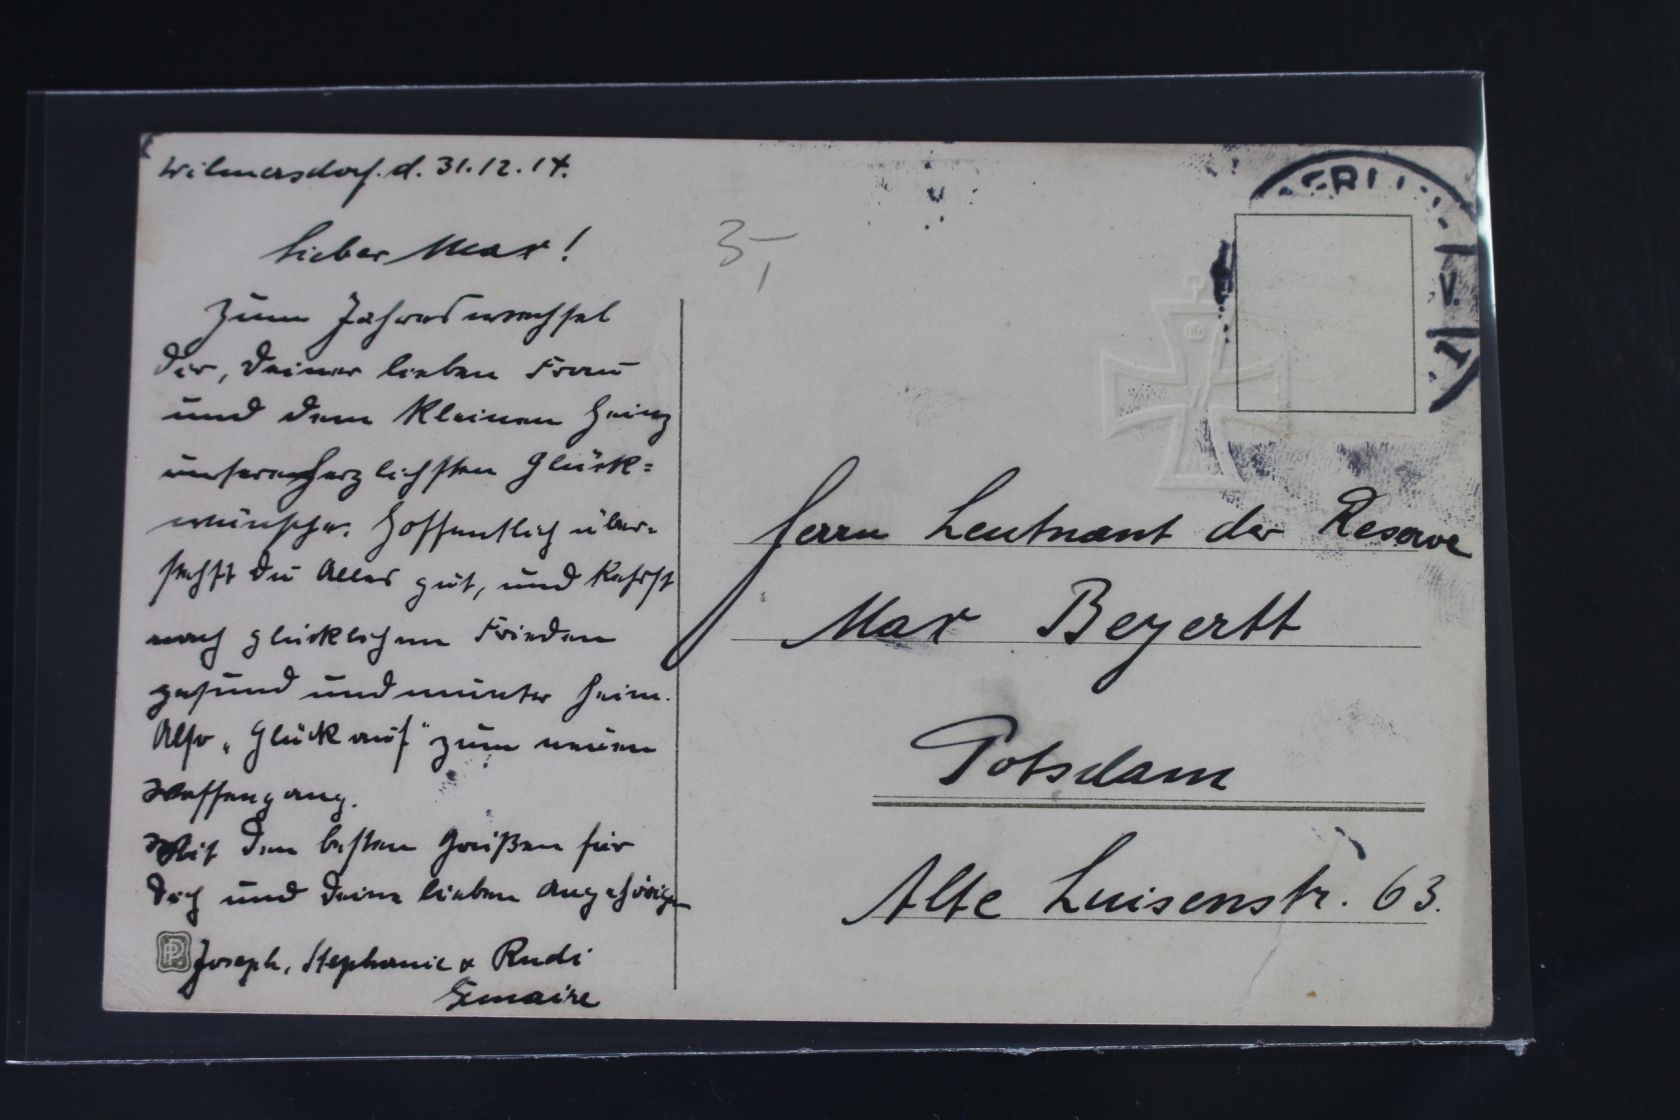 Wilmersdorf. d. 31.12.14.
Lieber Max!
Zum Jahreswechsel
Dir, Deiner lieben Frau
und dem kleinen Heinz
unsere herzlichsten Glück=
wünsche. Hoffentlich über-
stehst Du Alles gut, und kehrst
nach glücklichem Frieden
gesund und munter heim.
Also „Glück auf" zum neuen
Waffengang.
Mit den besten Grüßen für
Dich und Deine lieben Angehörigen
Joseph, Stephanie & Rudi
3,-
V.
Herrn Leutnant der Reserve
Max Beyertt
Potsdam
Alte Luisenstr. 63.